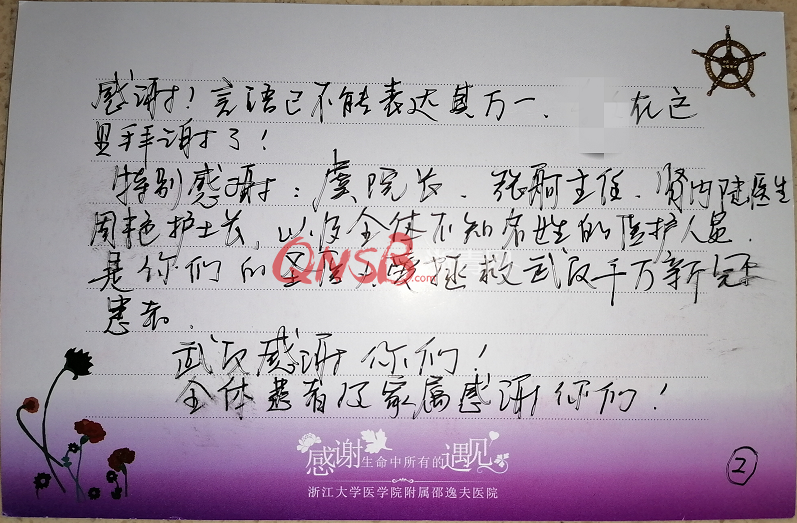 感谢！言语已不能表达其万一、在这
里拜谢了！
特别感谢：虞院长、张舸主任、肾内陆医生
周艳护士长、以及全体不知名姓的医护人员、
是你们的圣医大爱拯救武汉千万新冠
患者、
武汉感谢你们！
全体患者及家属感谢你们！
QNSB
.com
感谢生命中所有的遇见
浙江大学医学院附属邵逸夫医院
2